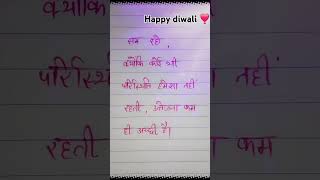 Happy diwali ❣️
सम रहो ,
क्योंकि कोई भी
परिस्थिति हमेसा नहीं
रहती, उत्तेजना कम
ही अच्छी है।